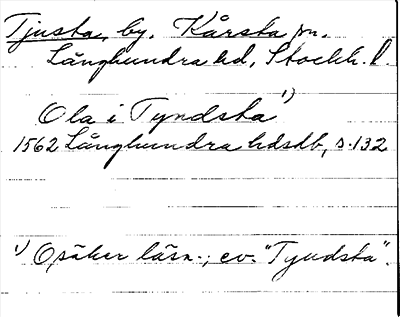 Tjusta, by, Kårsta sn.
Långhundra hd, Stockh. l.
Ola i Tyndsta¹⁾
1562 Långhundra hdsdb, s. 132
¹⁾ Osäker läsn.; ev. "Tyudsta".